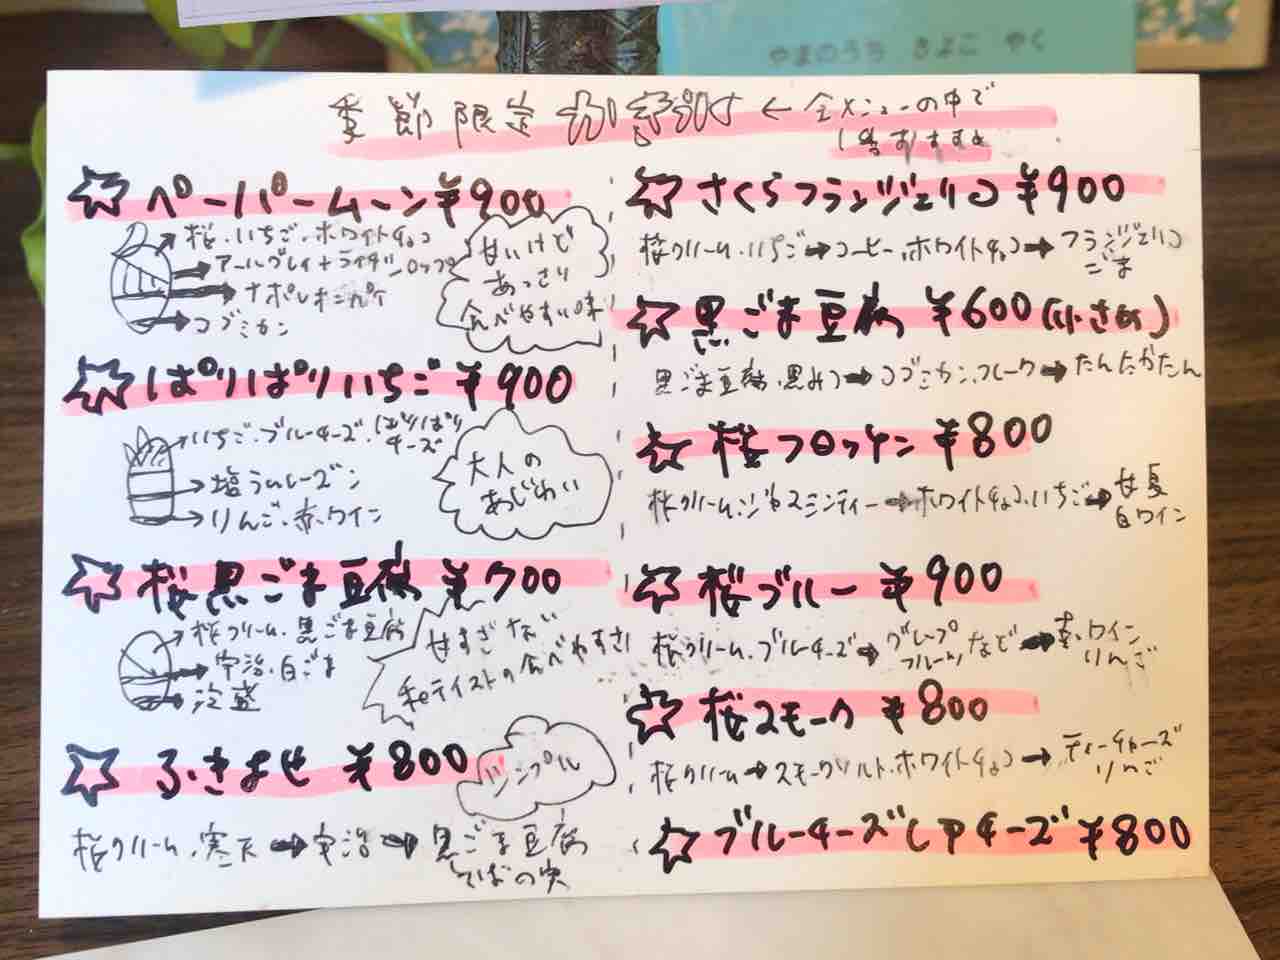 やまのうち きよこ やく
季節限定 かき氷 ← 全メニューの中で
1番おすすめ
☆ ペーパームーン ¥900
桜・いちご・ホワイトチョコ
アールグレイ+ライダーロップ
ナポレオンパイ
コブミカン
甘いけど
あっさり
食べやすい味
☆ ぱりぱりいちご ¥900
いちご・ブルーチーズ・ぱりぱり
チーズ
塩うみレーズン
りんご・赤ワイン
大人の
あじわい
☆ 桜黒ごま豆腐 ¥700
桜クリーム・黒ごま豆腐
宇治・白ごま
甘すぎない
和テイストの食べやすさ!
☆ ふきよせ ¥800
シンプル
桜クリーム、寒天 → 宇治 → 黒ごま豆腐
そばの実
☆ さくらフランジェリコ ¥900
桜クリーム・いちご → コーヒー、ホワイトチョコ → フランジェリコ
ごま
☆ 黒ごま豆腐 ¥600(小さめ)
黒ごま豆腐・黒みつ → コブミカン、フレーク → たんたかたん
☆ 桜フロッケン ¥800
桜クリーム・ジャスミンティー → ホワイトチョコ・いちご → 甘夏
白ワイン
☆ 桜ブルー ¥900
桜クリーム・ブルーチーズ → グレープ
フルーツ など → 赤ワイン
りんご
☆ 桜スモーク ¥800
桜クリーム → スモークソルト・ホワイトチョコ → ティーチャーズ
りんご
☆ ブルーチーズレアチーズ ¥800